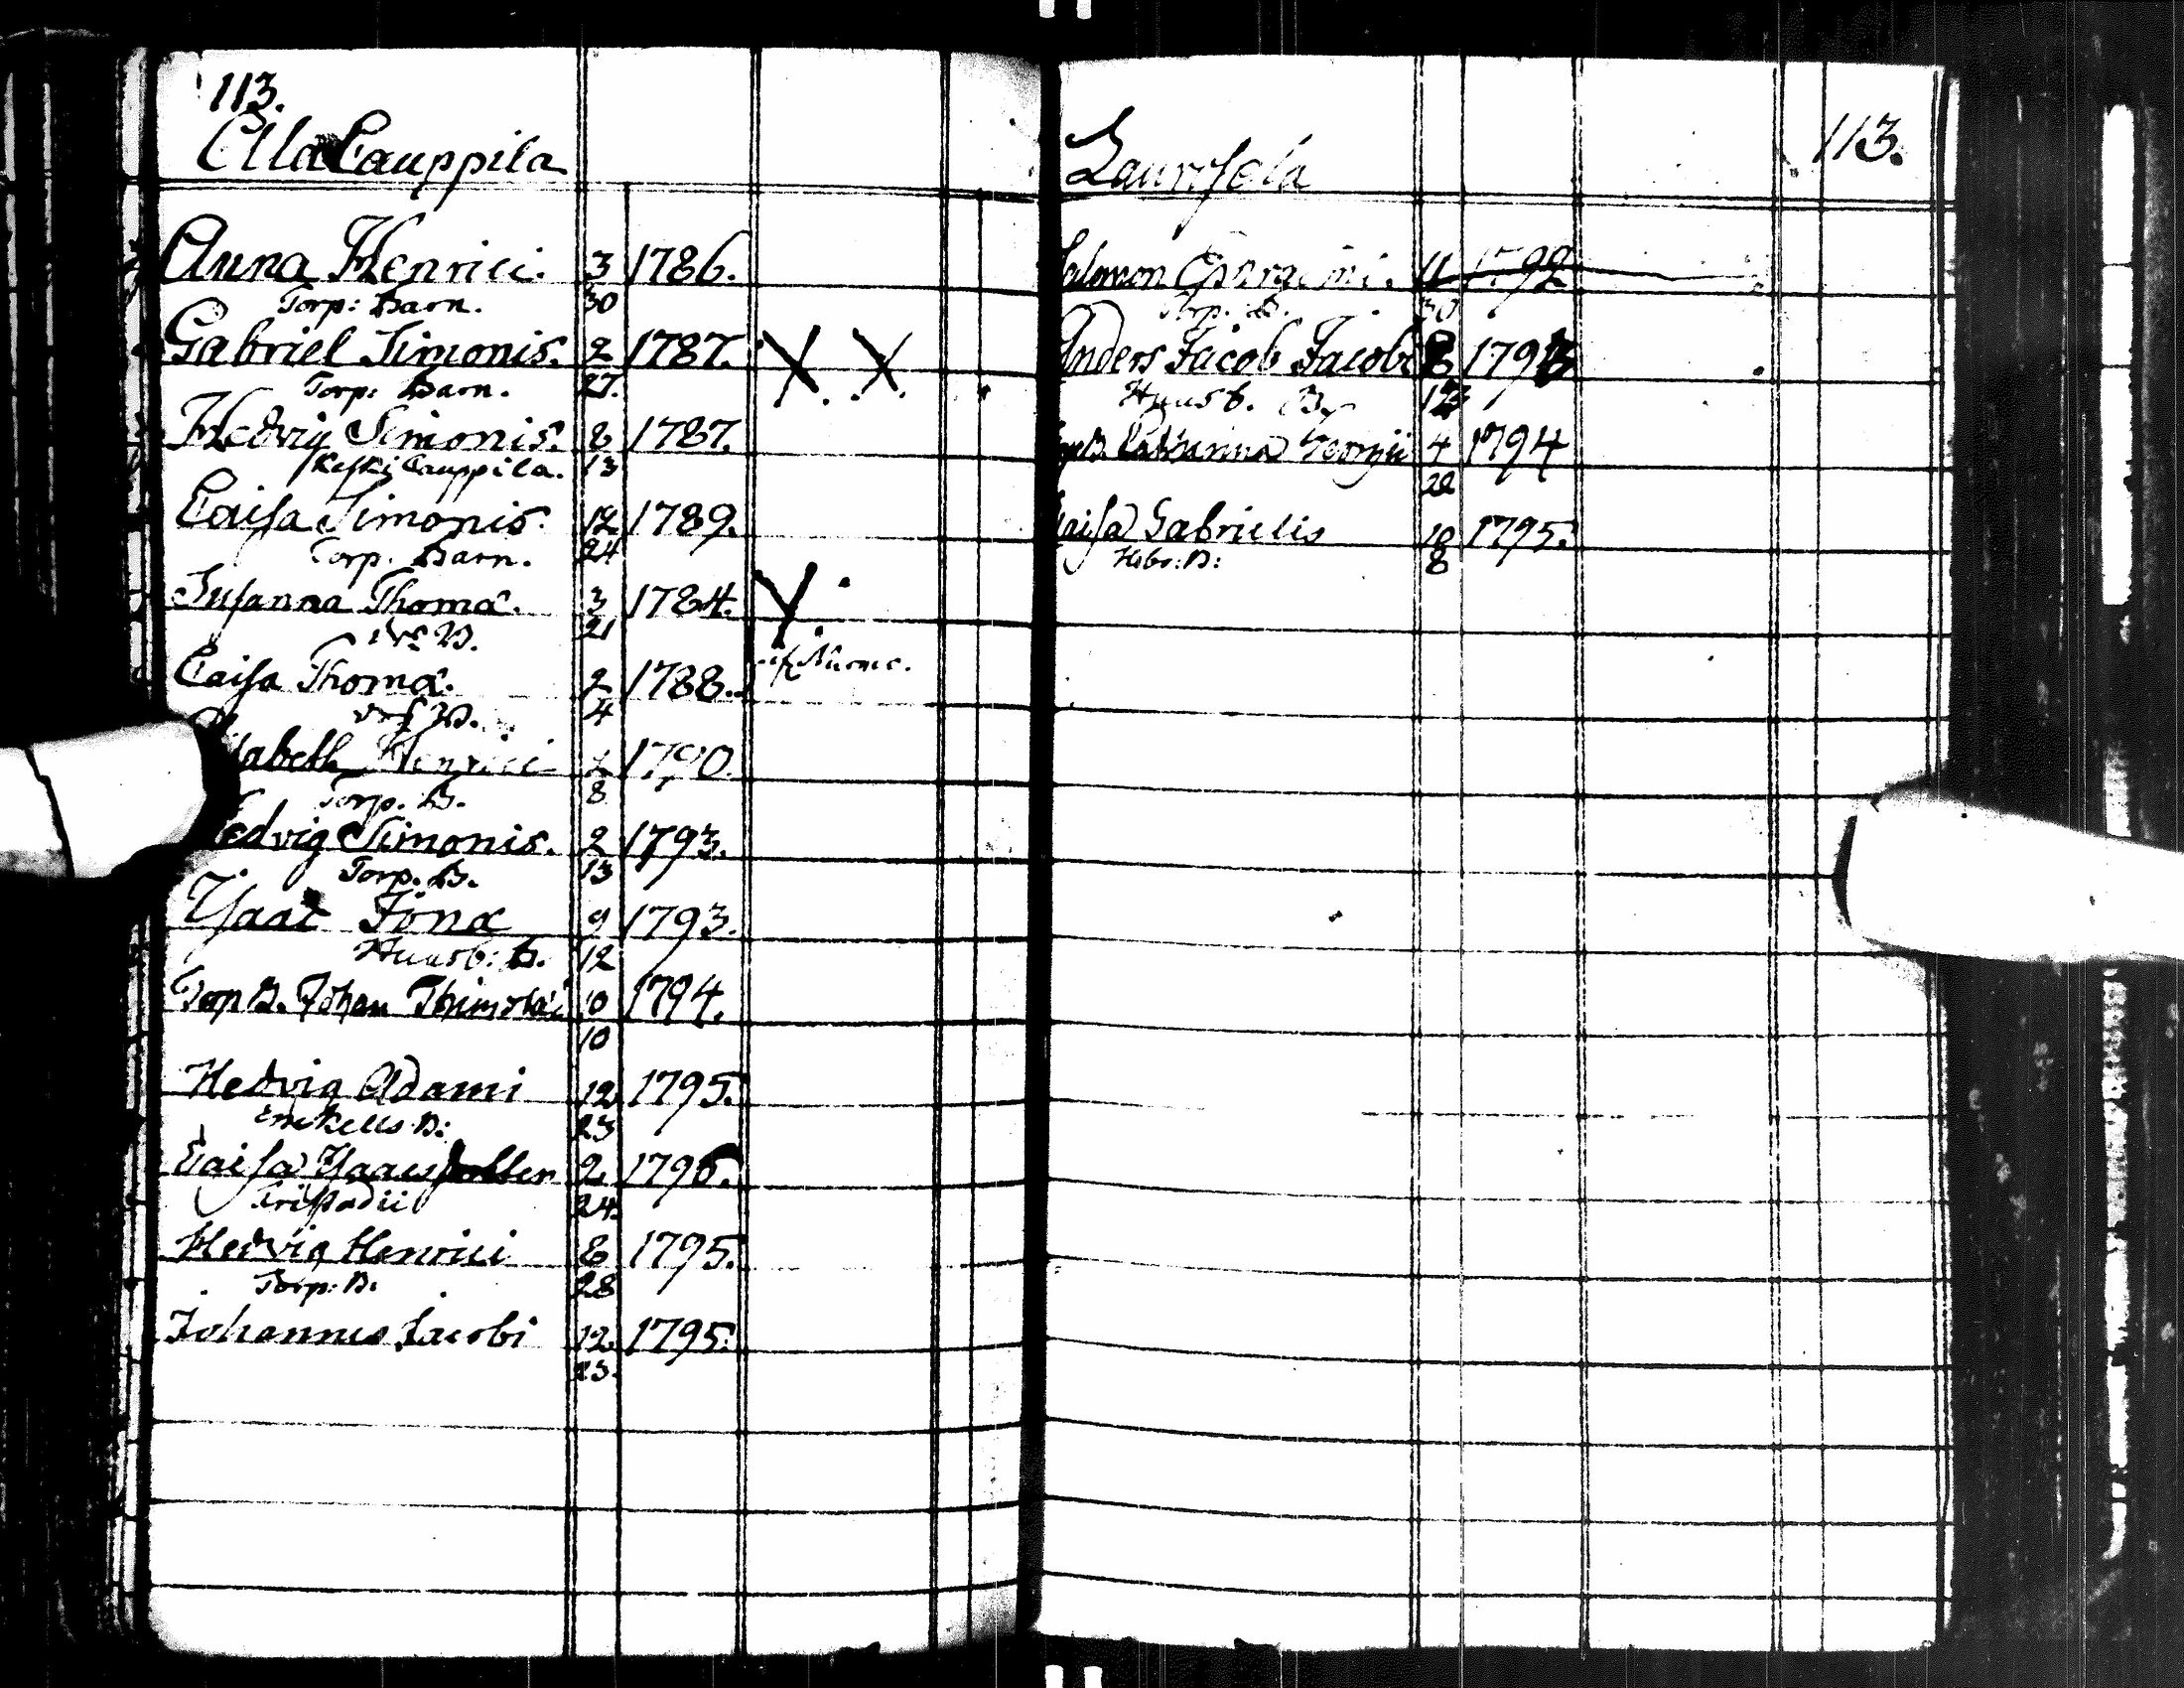 113.
Alacauppila
Anna Henrici. 3 1786.
Torp: Barn. 30
Gabriel Simonis. 2 1787. X. X.
Torp: Barn. 27.
Hedvig Simonis. 8 1787.
Keski Cauppila. 13
Caisa Simonis. 12 1789.
Torp. Barn. 24
Susanna Thomæ. 3 1784.
B. 21
Caisa Thomæ. 2 1788.
B. 4
Elisabeth Henrici 1790.
Torp. B. 8
Hedvig Simonis. 2 1793.
Torp. B. 13
Isaac Jonæ 9 1793.
Huusb: B. 12
Torp B. Johan 10 1794.
10
Hedvig Adami 12 1795.
Enckells B: 23
Caisa 2 1796.
24.
Hedvig Henrici 8 1795.
Torp: B. 28
Johannes Jacobi 12 1795.
23.
113.
Salomon 11 1792
Torp. B. 30
Anders Jacob Jacobi 1793
Huusb. B.
Torp B. Catharina Georgii 4 1794
28
Caisa Gabrielis 10 1795.
B: 8